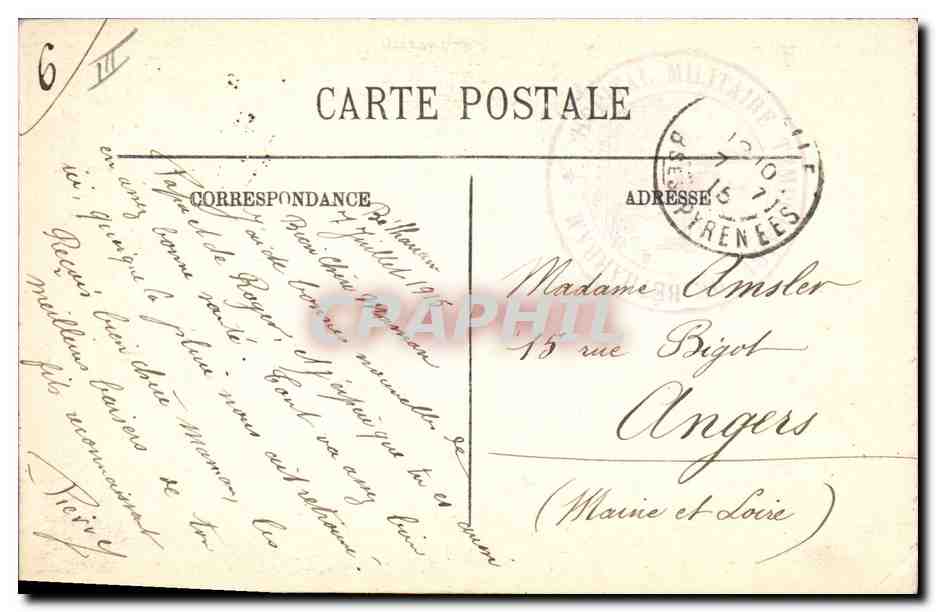 6
III
CARTE POSTALE
CORRESPONDANCE
ADRESSE
HOPITAL MILITAIRE TEMP
BETHARRAM
7 15
BSES PYRENEES
Bétharram
7 Juillet 1915
Bien chère Maman
J'ai de bonnes nouvelles de
Papa et de Roger. J'espère que tu es aussi
en assez bonne santé. Tout va assez bien
ici, quoique la pluie nous ait
Reçois bien chère Maman, les
meilleurs baisers de ton
fils reconnaissant
Pierre
Madame Amsler
15 rue Bigot
Angers
(Maine et Loire)
CRAPHIL